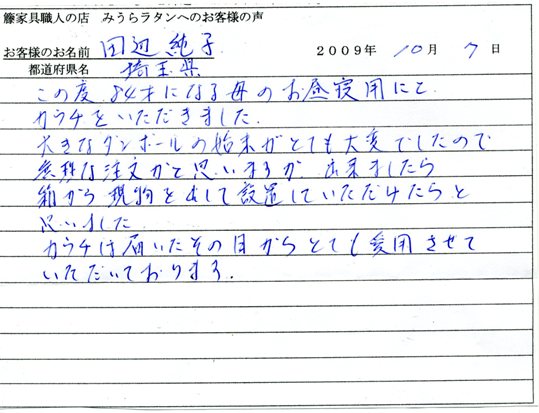 籐家具職人の店　みうらラタンへのお客様の声
お客様のお名前　田辺 純子　２００９年 10月 7日
都道府県名　埼玉県
この度 84才になる母のお昼寝用にと
カウチをいただきました．
大きなダンボールの始末がとても大変でしたので
無理な注文かと思いますが 出来ましたら
箱から現物を出して設置していただけたらと
思いました
カウチは届いたその日からとても愛用させて
いただいております．